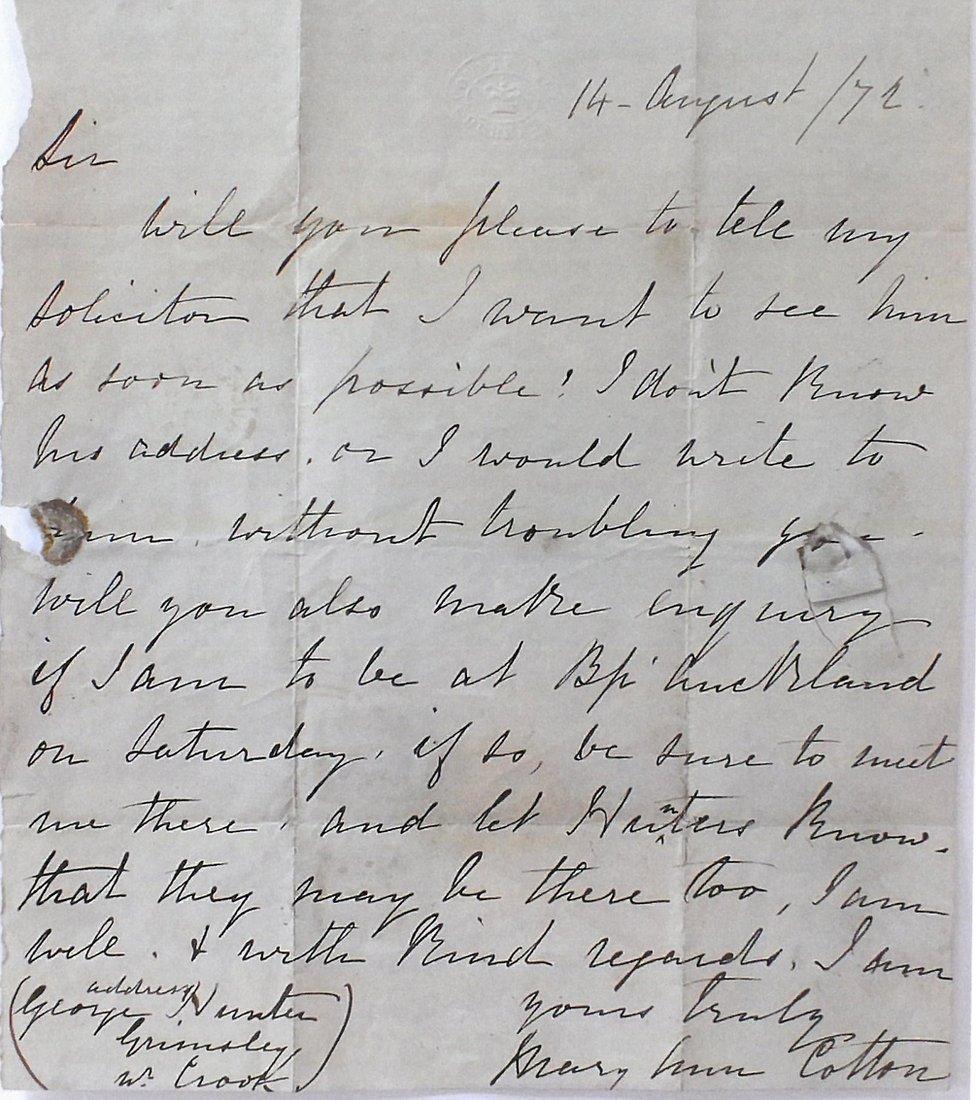 14 - August /72.
Sir
Will you please to tell my
solicitor that I want to see him
as soon as possible! I don't Know
his address. or I would write to
him. without troubling you -
Will you also make enquiry
if I am to be at Bp' Auckland
on Saturday. if so, be sure to meet
me there. and let Hunters Know.
that they may be there too, I am
well. & with Kind regards. I am
yours truly
Mary Ann Cotton
(address
George Hunter
Grimsley
Nr Crook.)